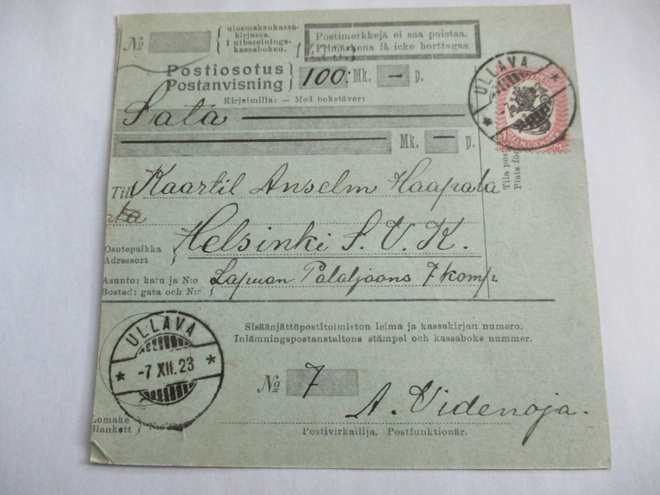 № ulosmaksukassa-
kirjassa.
i utbetalnings-
kassaboken.
Postimerkkejä ei saa poistaa.
Frimärkena få icke borttagas.
Postiosotus
Postanvisning
100: Mk. — p.
Kirjaimilla: — Med bokstäver:
Sata
Mk. — p.
ULLAVA
Till Kaartil Anselm Haapala
Osotepaikka
Adressort
Helsinki S. V. K.
Asunto: katu ja N:o
Bostad: gata och N:r
Lapuan 7 komp
Tila
Plats
Sisäänjättöpostitoimiston leima ja kassakirjan numero.
Inlämningspostanstaltens stämpel och kassaboks nummer.
ULLAVA
-7 XII. 23
№ 7
A. Videnoja.
Postivirkailija, Postfunktionär.
Lomake
Blankett